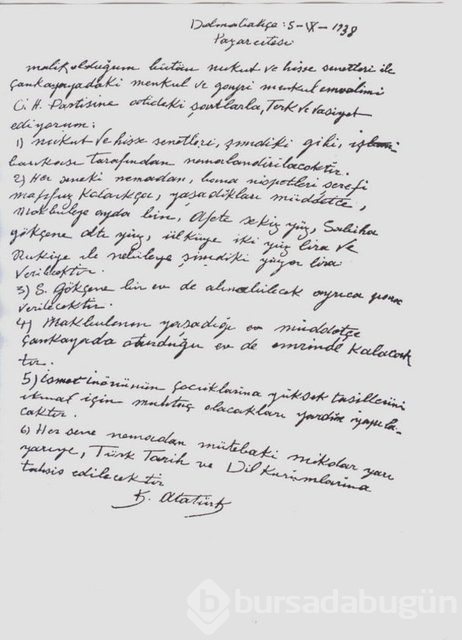 Dolmabahçe: 5-IX-1938
Pazartesi
malik olduğum bütün nukut ve hisse senetleri ile
Çankayadaki menkul ve gayri menkul emvalimi
C. H. Partisine atideki şartlarla, Terk ve Vasiyet
ediyorum:
1) nukut ve hisse senetleri, şimdiki gibi, iş
bankası tarafından nemalandırılacaktır.
2) Her seneki nemadan, bana nispetleri şerefi
mahfuz kaldıkça, yaşadıkları müddetçe,
Makbuleye ayda bin, Afete sekiz yüz, Sabiha
gökçene altı yüz, ülküye iki yüz lira ve
Rukiye ile nebileye şimdiki yüzer lira
verilecektir.
3) S. Gökçene bir ev de alınabilecek ayrıca para
verilecektir.
4) Makbulenin yaşadığı müddetçe
Çankayada oturduğu ev de emrinde kalacak
tır.
5) ismet inönünün çocuklarına yüksek tahsillerini
ikmal için muhtaç olacakları yardım yapıla-
caktır.
6) Her sene nemadan mütebaki miktar yarı
yarıya, Türk Tarih ve Dil Kurumlarına
tahsis edilecektir
K. Atatürk
b bursadabugün